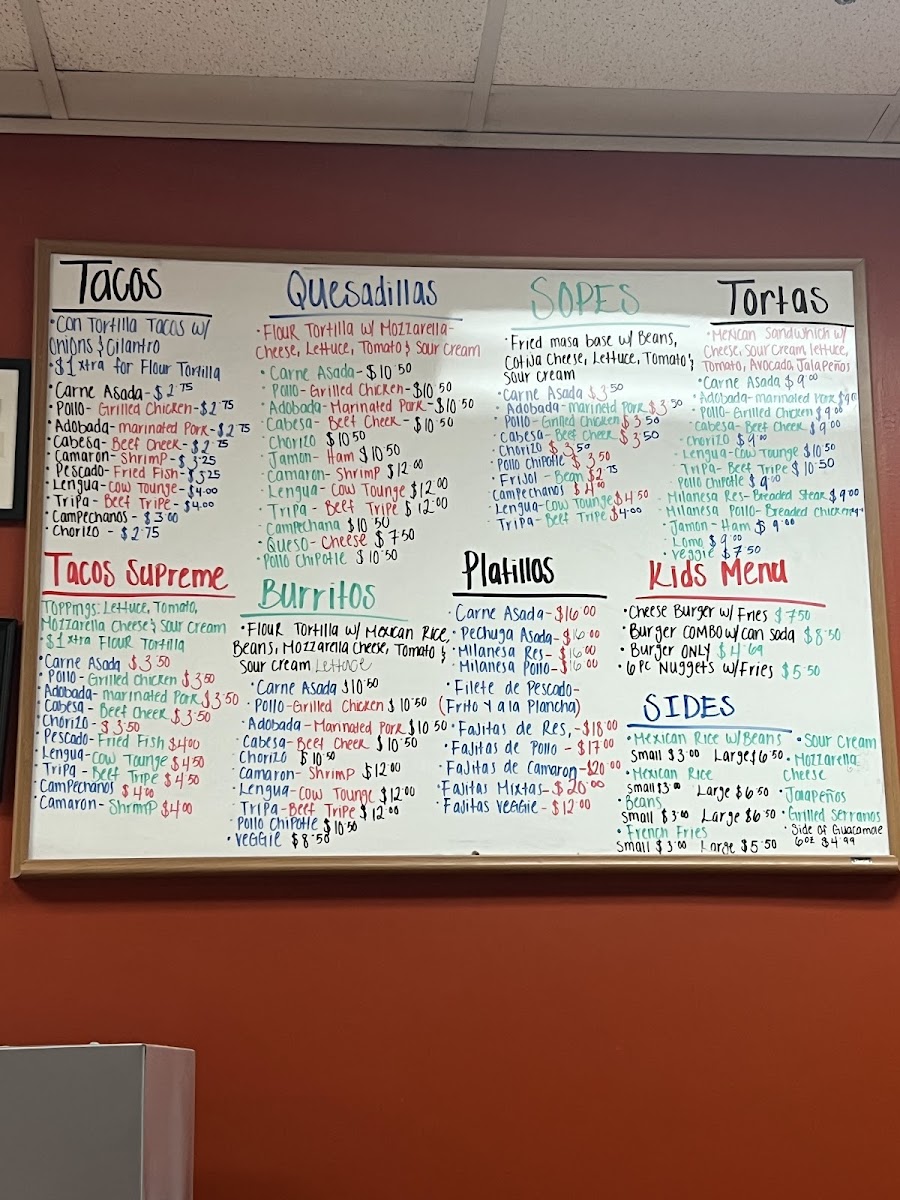 Tacos
•Con Tortilla Tacos w/
Onions & Cilantro
•$1 xtra for Flour Tortilla
•Carne Asada - $2.75
•Pollo - Grilled Chicken - $2.75
•Adobada - marinated Pork - $2.75
•Cabesa - Beef Cheek - $2.75
•Camaron - Shrimp - $3.25
•Pescado - Fried Fish - $3.25
•Lengua - Cow Tounge - $4.00
•Tripa - Beef Tripe - $4.00
•Campechanos - $3.00
•Chorizo - $2.75
Quesadillas
•Flour Tortilla w/ Mozzarella-
Cheese, Lettuce, Tomato & Sour Cream
•Carne Asada - $10.50
•Pollo - Grilled Chicken - $10.50
•Adobada - Marinated Pork - $10.50
•Cabesa - Beef Cheek - $10.50
•Chorizo $10.50
•Jamon - Ham $10.50
•Camaron - Shrimp $12.00
•Lengua - Cow Tounge $12.00
•Tripa - Beef Tripe $12.00
•Campechana $10.50
•Queso - Cheese $7.50
•Pollo Chipotle $10.50
SOPES
•Fried masa base w/ Beans,
Cotija Cheese, Lettuce, Tomato &
Sour Cream
•Carne Asada $3.50
•Adobada - marineted Pork $3.50
•Pollo - Grilled Chicken $3.50
•Cabesa - Beef Cheek $3.50
•Chorizo $3.50
•Pollo Chipotle $3.50
•Frijol - Bean $2.75
•Campechanos $4.00
•Lengua - Cow Tounge $4.50
•Tripa - Beef Tripe $4.00
Tortas
•Mexican Sandwhich w/
Cheese, Sour Cream, lettuce,
Tomato, Avocado, Jalapeños
•Carne Asada $9.00
•Adobada - marinated Pork $9.00
•Pollo - Grilled Chicken $9.00
•Cabesa - Beef Cheek $9.00
•Chorizo $9.00
•Lengua - Cow Tounge $10.50
•Tripa - Beef Tripe $10.50
•Pollo Chipotle $9.00
•Milanesa Res - Breaded Steak $9.00
•Milanesa Pollo - Breaded Chicken
•Jamon - Ham $9.00
•Lomo $9.00
•Veggie $7.50
Tacos Supreme
Toppings: Lettuce, Tomato,
Mozzarella Cheese & Sour Cream
•$1 xtra Flour Tortilla
•Carne Asada $3.50
•Pollo - Grilled Chicken $3.50
•Adobada - marinated Pork $3.50
•Cabesa - Beef Cheek $3.50
•Chorizo - $3.50
•Pescado - Fried Fish $4.00
•Lengua - Cow Tounge $4.50
•Tripa - Beef Tripe $4.50
•Campechanos $4.00
•Camaron - Shrimp $4.00
Burritos
•Flour Tortilla w/ Mexican Rice,
Beans, Mozzarella Cheese, Tomato &
Sour cream Lettuce
•Carne Asada $10.50
•Pollo - Grilled Chicken $10.50
•Adobada - Marinated Pork $10.50
•Cabesa - Beef Cheek $10.50
•Chorizo $10.50
•Camaron - Shrimp $12.00
•Lengua - Cow Tounge $12.00
•Tripa - Beef Tripe $12.00
•Pollo Chipotle $10.50
•Veggie $8.50
Platillos
•Carne Asada - $16.00
•Pechuga Asada - $16.00
•Milanesa Res - $16.00
•Milanesa Pollo - $16.00
•Filete de Pescado -
(Frito y a la Plancha)
•Fajitas de Res, - $18.00
•Fajitas de Pollo - $17.00
•Fajitas de Camaron - $20.00
•Fajitas Mixtas - $20.00
•Fajitas Veggie - $12.00
Kids Menu
•Cheese Burger w/ Fries $7.50
•Burger COMBO w/can soda $8.50
•Burger ONLY $4.69
•6 pc Nuggets w/Fries $5.50
SIDES
•Mexican Rice w/Beans
Small $3.00 Large $6.50
•Mexican Rice
Small $3.00 Large $6.50
•Beans
Small $3.00 Large $6.50
•French Fries
Small $3.00 Large $5.50
•Sour Cream
•Mozzarella
Cheese
•Jalapeños
•Grilled Serranos
•Side of Guacamole
6oz $4.99